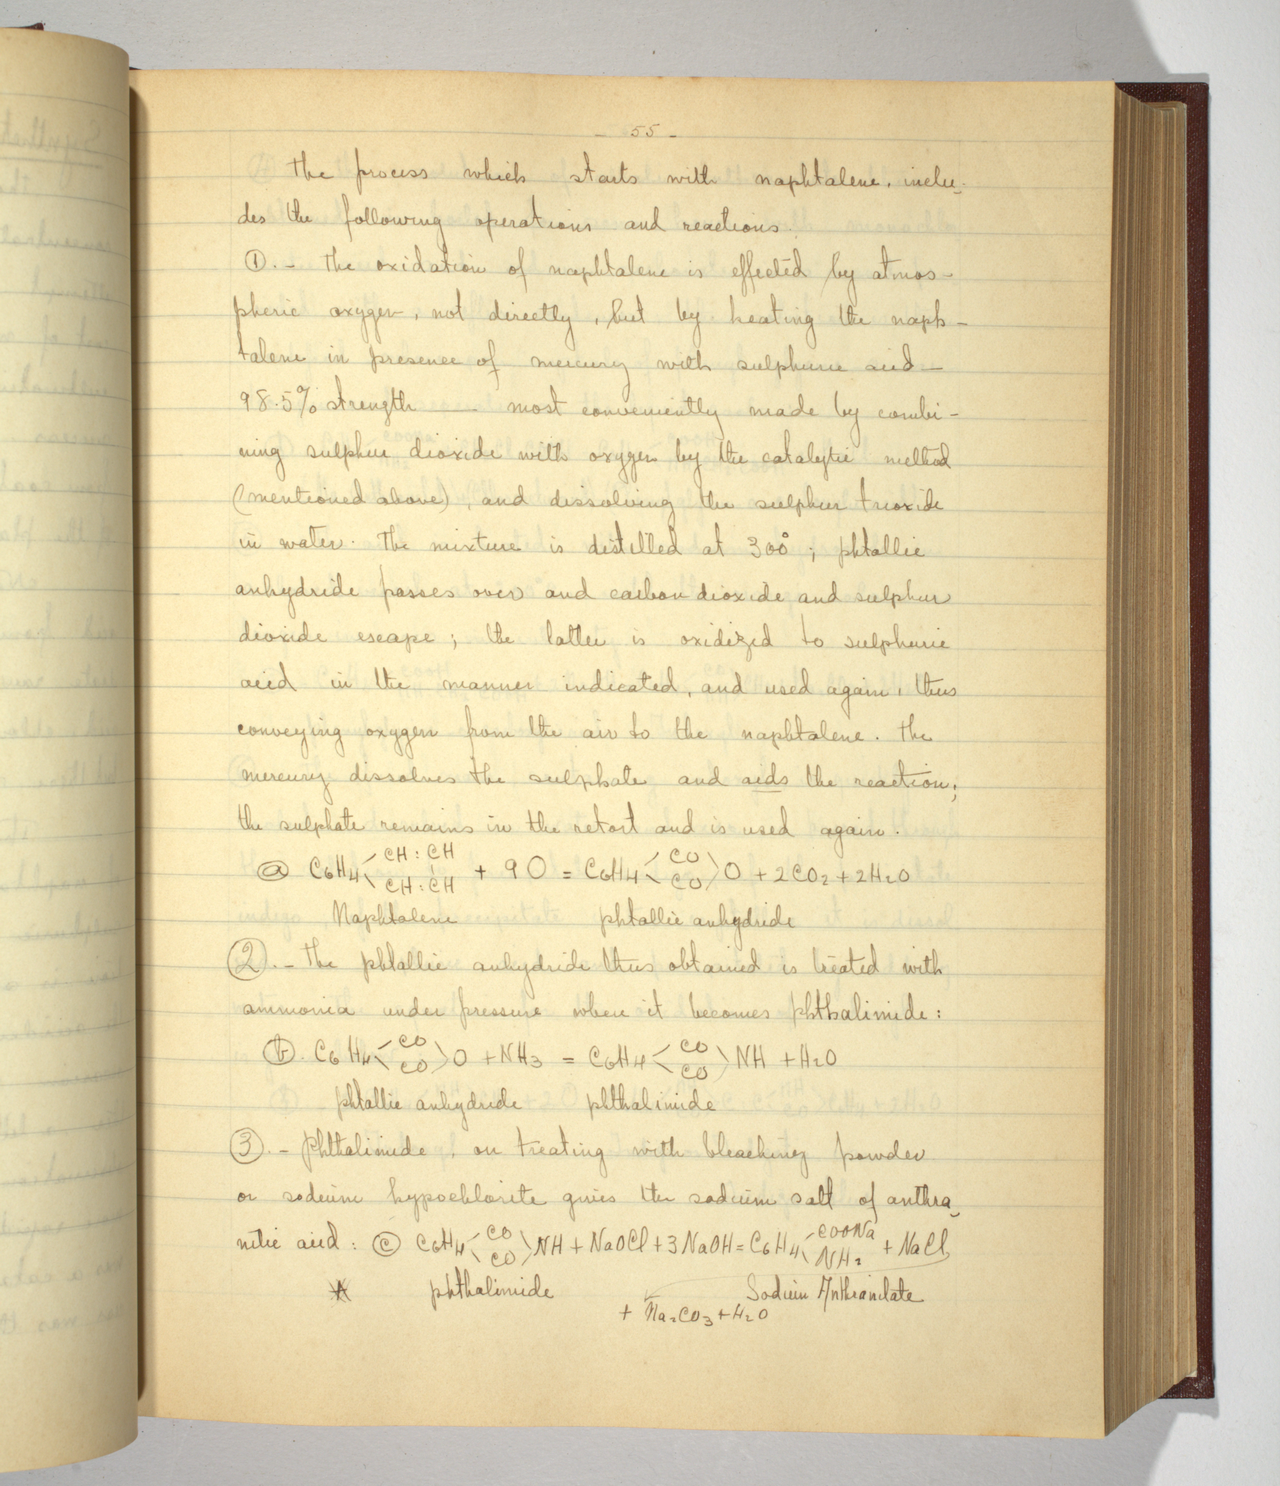 - 55 -
The process which starts with naphtalene, inclu-
des the following operations and reactions.
①.- The oxidation of naphtalene is effected by atmos-
pheric oxygen, not directly, but by heating the naph-
talene in presence of mercury with sulphuric acid —
98.5% strength — most conveniently made by combi-
ning sulphur dioxide with oxygen by the catalytic method
(mentioned above), and dissolving the sulphur trioxide
in water. The mixture is distilled at 300°; phtallic
anhydride passes over and carbon dioxide and sulphur
dioxide escape; the latter is oxidized to sulphuric
acid in the manner indicated, and used again, thus
conveying oxygen from the air to the naphtalene. The
mercury dissolves the sulphate and aids the reaction;
the sulphate remains in the retort and is used again.
ⓐ C6H4 < CH : CH / CH : CH + 9 O = C6H4 < CO / CO > O + 2CO2 + 2H2O
Naphtalene phtallic anhydride
②.- The phtallic anhydride thus obtained is treated with
ammonia under pressure when it becomes phthalimide:
ⓑ. C6H4 < CO / CO > O + NH3 = C6H4 < CO / CO > NH + H2O
phtallic anhydride phthalimide
③.- Phthalimide, on treating with bleaching powder
or sodium hypochlorite gives the sodium salt of anthra-
nilic acid: ⓒ C6H4 < CO / CO > NH + NaOCl + 3NaOH = C6H4 < COONa / NH2 + NaCl
phthalimide Sodium Anthranilate
+ Na2CO3 + H2O